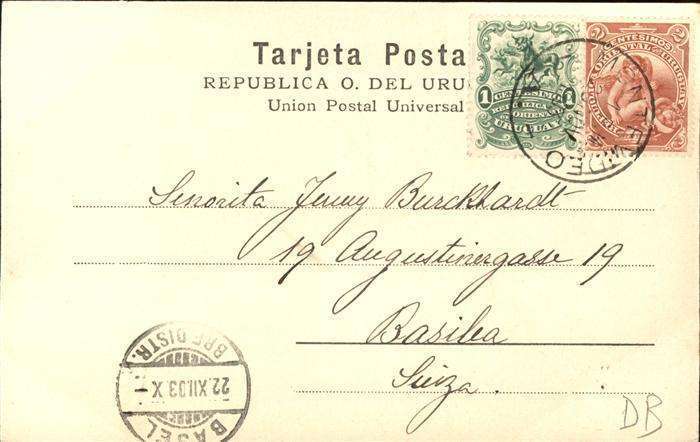 Tarjeta Posta
REPUBLICA O. DEL URU
Union Postal Universal
1 CENTESIMO 1
REPUBLICA
ORIENTAL
URUGUAY
2 CENTESIMOS 2
REPUBLICA ORIENTAL del URUGUAY
MONTEVIDEO
Senorita Jenny Burckhardt
19 Augustinergasse 19
Basilea
Suiza.
BASEL
22.XII.03.X
BRF. DISTR.
DB